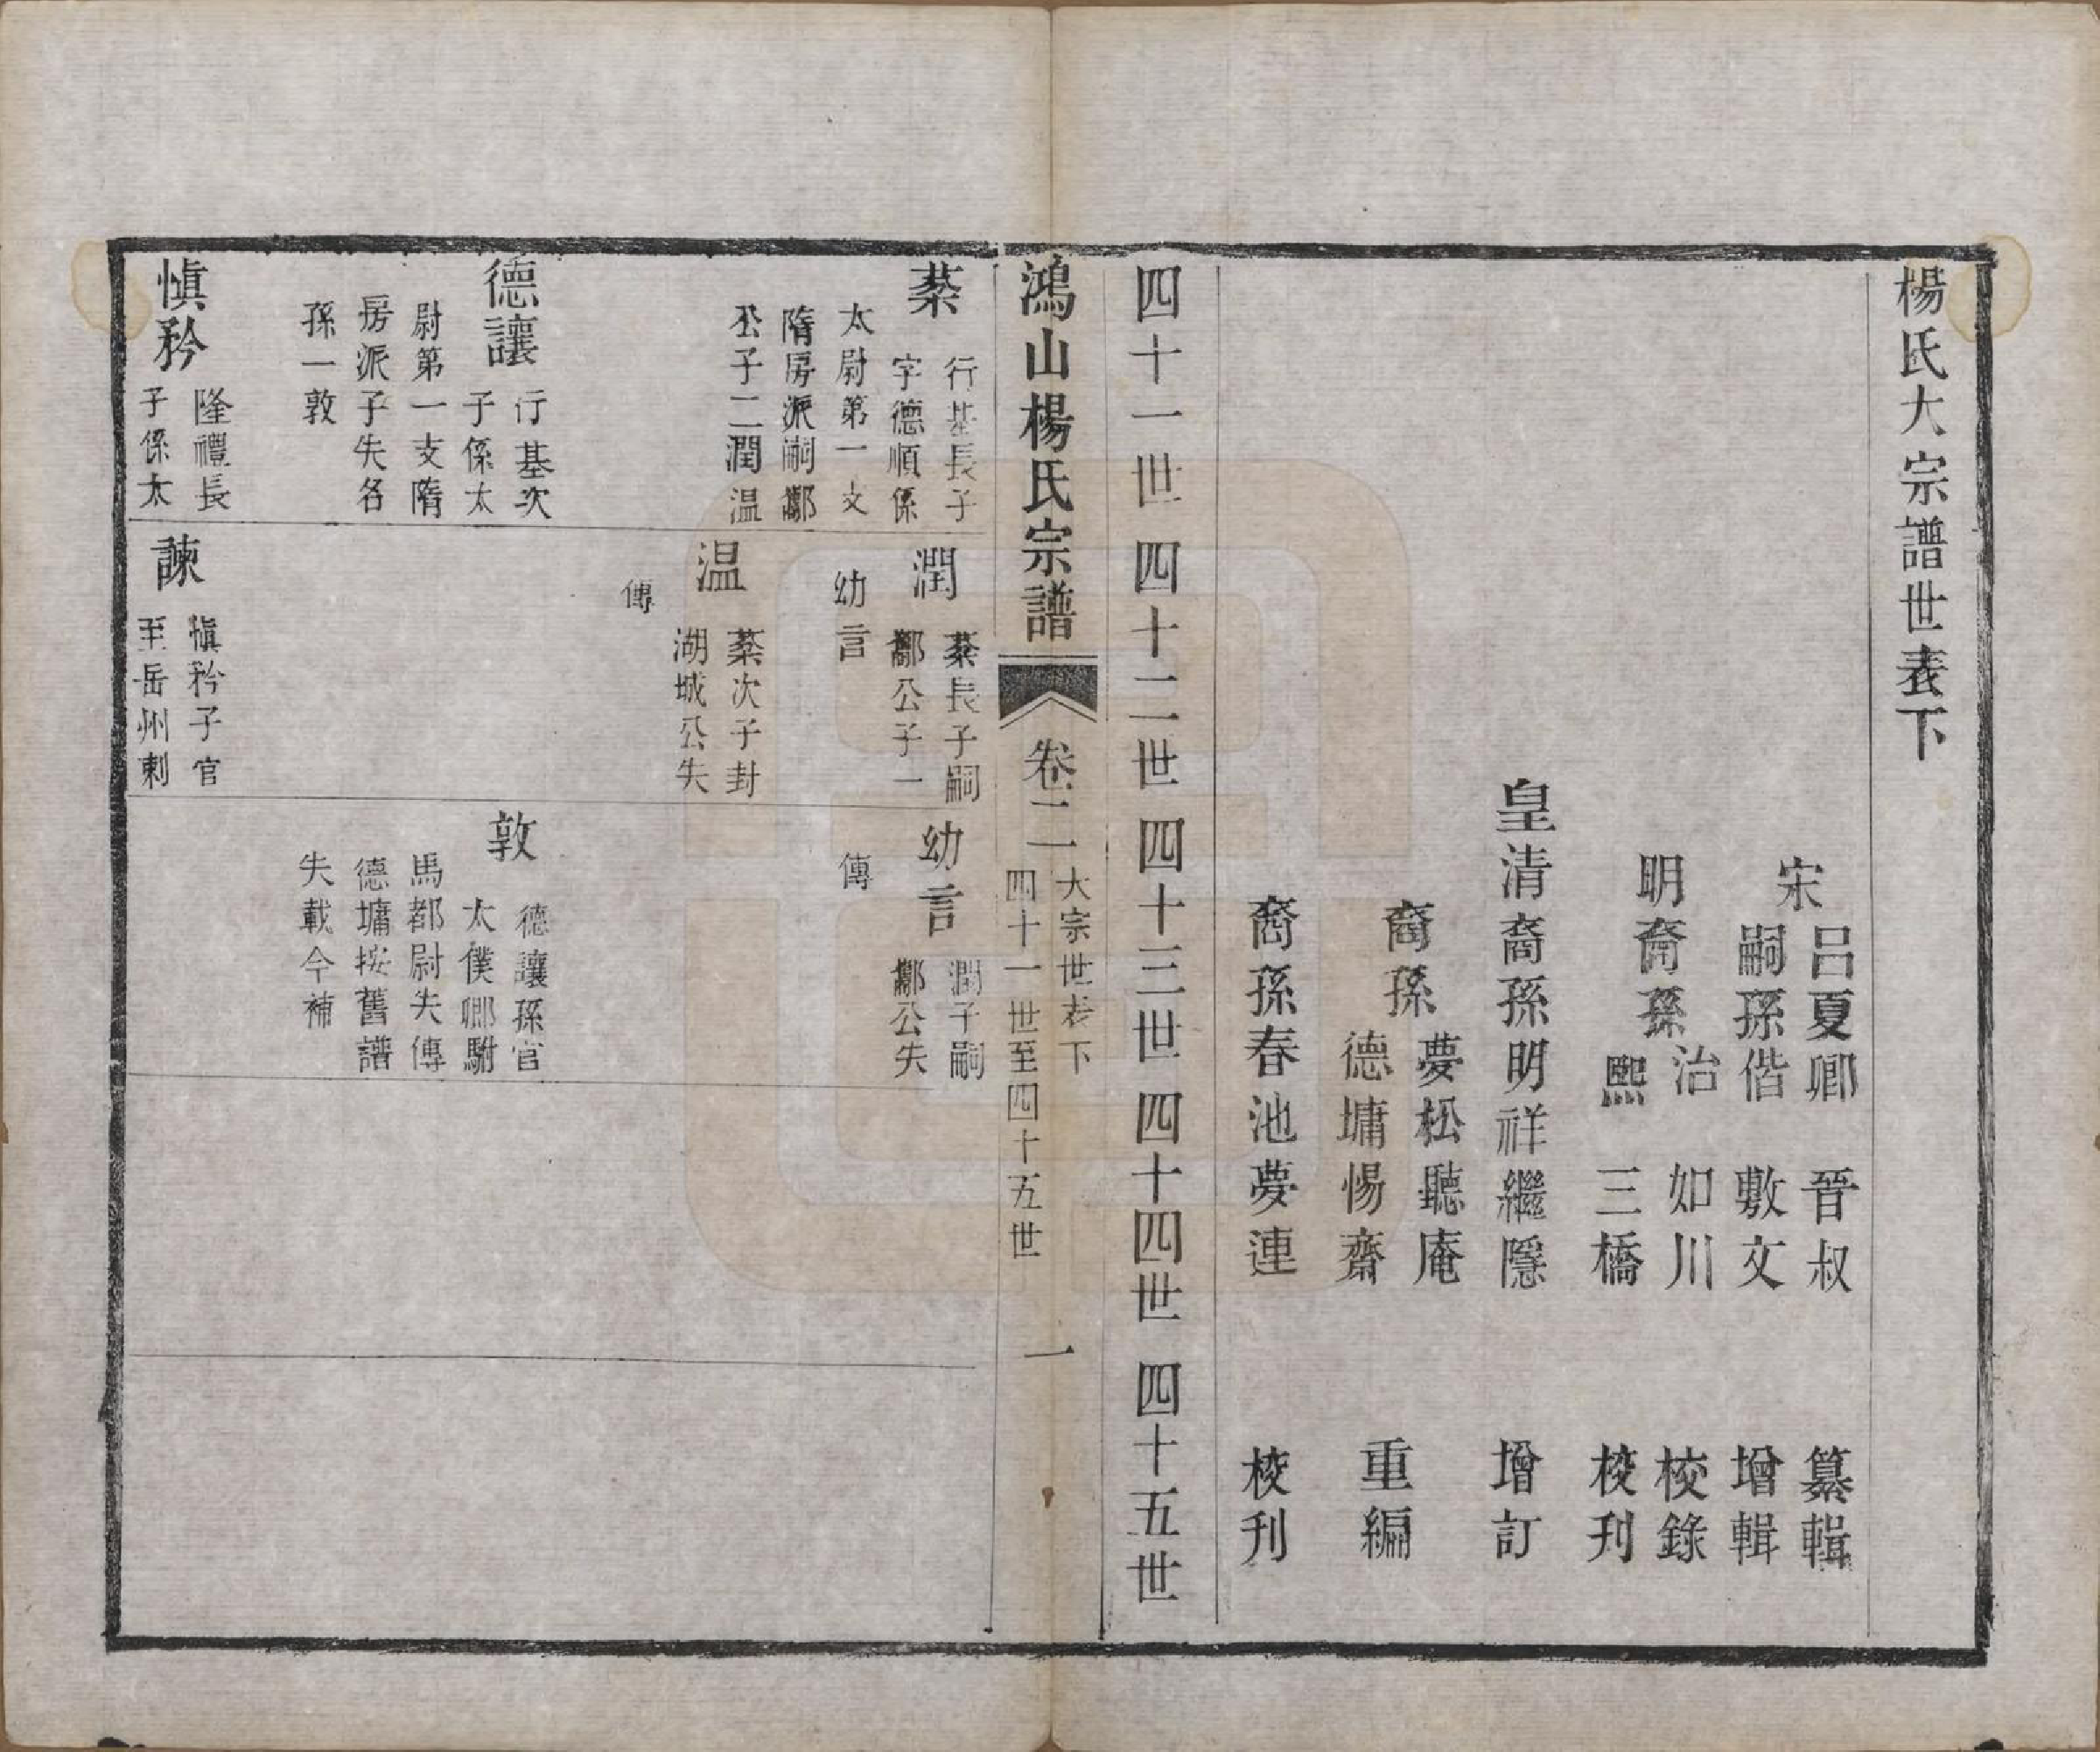 楊氏大宗譜世表下
宋
呂夏卿 晉叔 纂輯
嗣孫偕 敷文 增輯
明裔孫
治 如川 校錄
熙 三橋 校刊
皇清裔孫明祥繼隱 增訂
裔孫
夢松聽庵
德墉惕齋
重編
裔孫春池夢連 校刊
四十一世 四十二世 四十三世 四十四世 四十五世
鴻山楊氏宗譜 卷二
大宗世表下
四十一世至四十五世
一
棻
行基長子
字德順係
太尉第一支
隋房派嗣酅
公子二潤溫
潤
棻長子嗣
酅公子一
幼言
幼言
潤子嗣
酅公失
傳
温
棻次子封
湖城公失
傳
德讓
行基次
子係太
尉第一支隋
房派子失名
孫一敦
敦
德讓孫官
太僕卿駙
馬都尉失傳
德墉按舊譜
失載今補
慎矜
隆禮長
子係太
諫
慎矜子官
至岳州刺